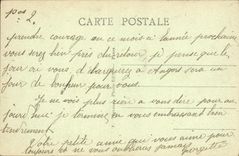 pas 2.
CARTE POSTALE
prendre courage car ce mois-ci l'année prochaine
vous serez bien près du retour, je pense que le
jour où vous débarquerez à Angers sera un
jour de bonheur pour vous.
Je ne vois plus rien a vous dire pour au
jourd'hui je termine en vous embrassant bien
tendrement.
Votre petite amie qui vous aime pour
toujours et ne vous oubliera jamais
Georgette